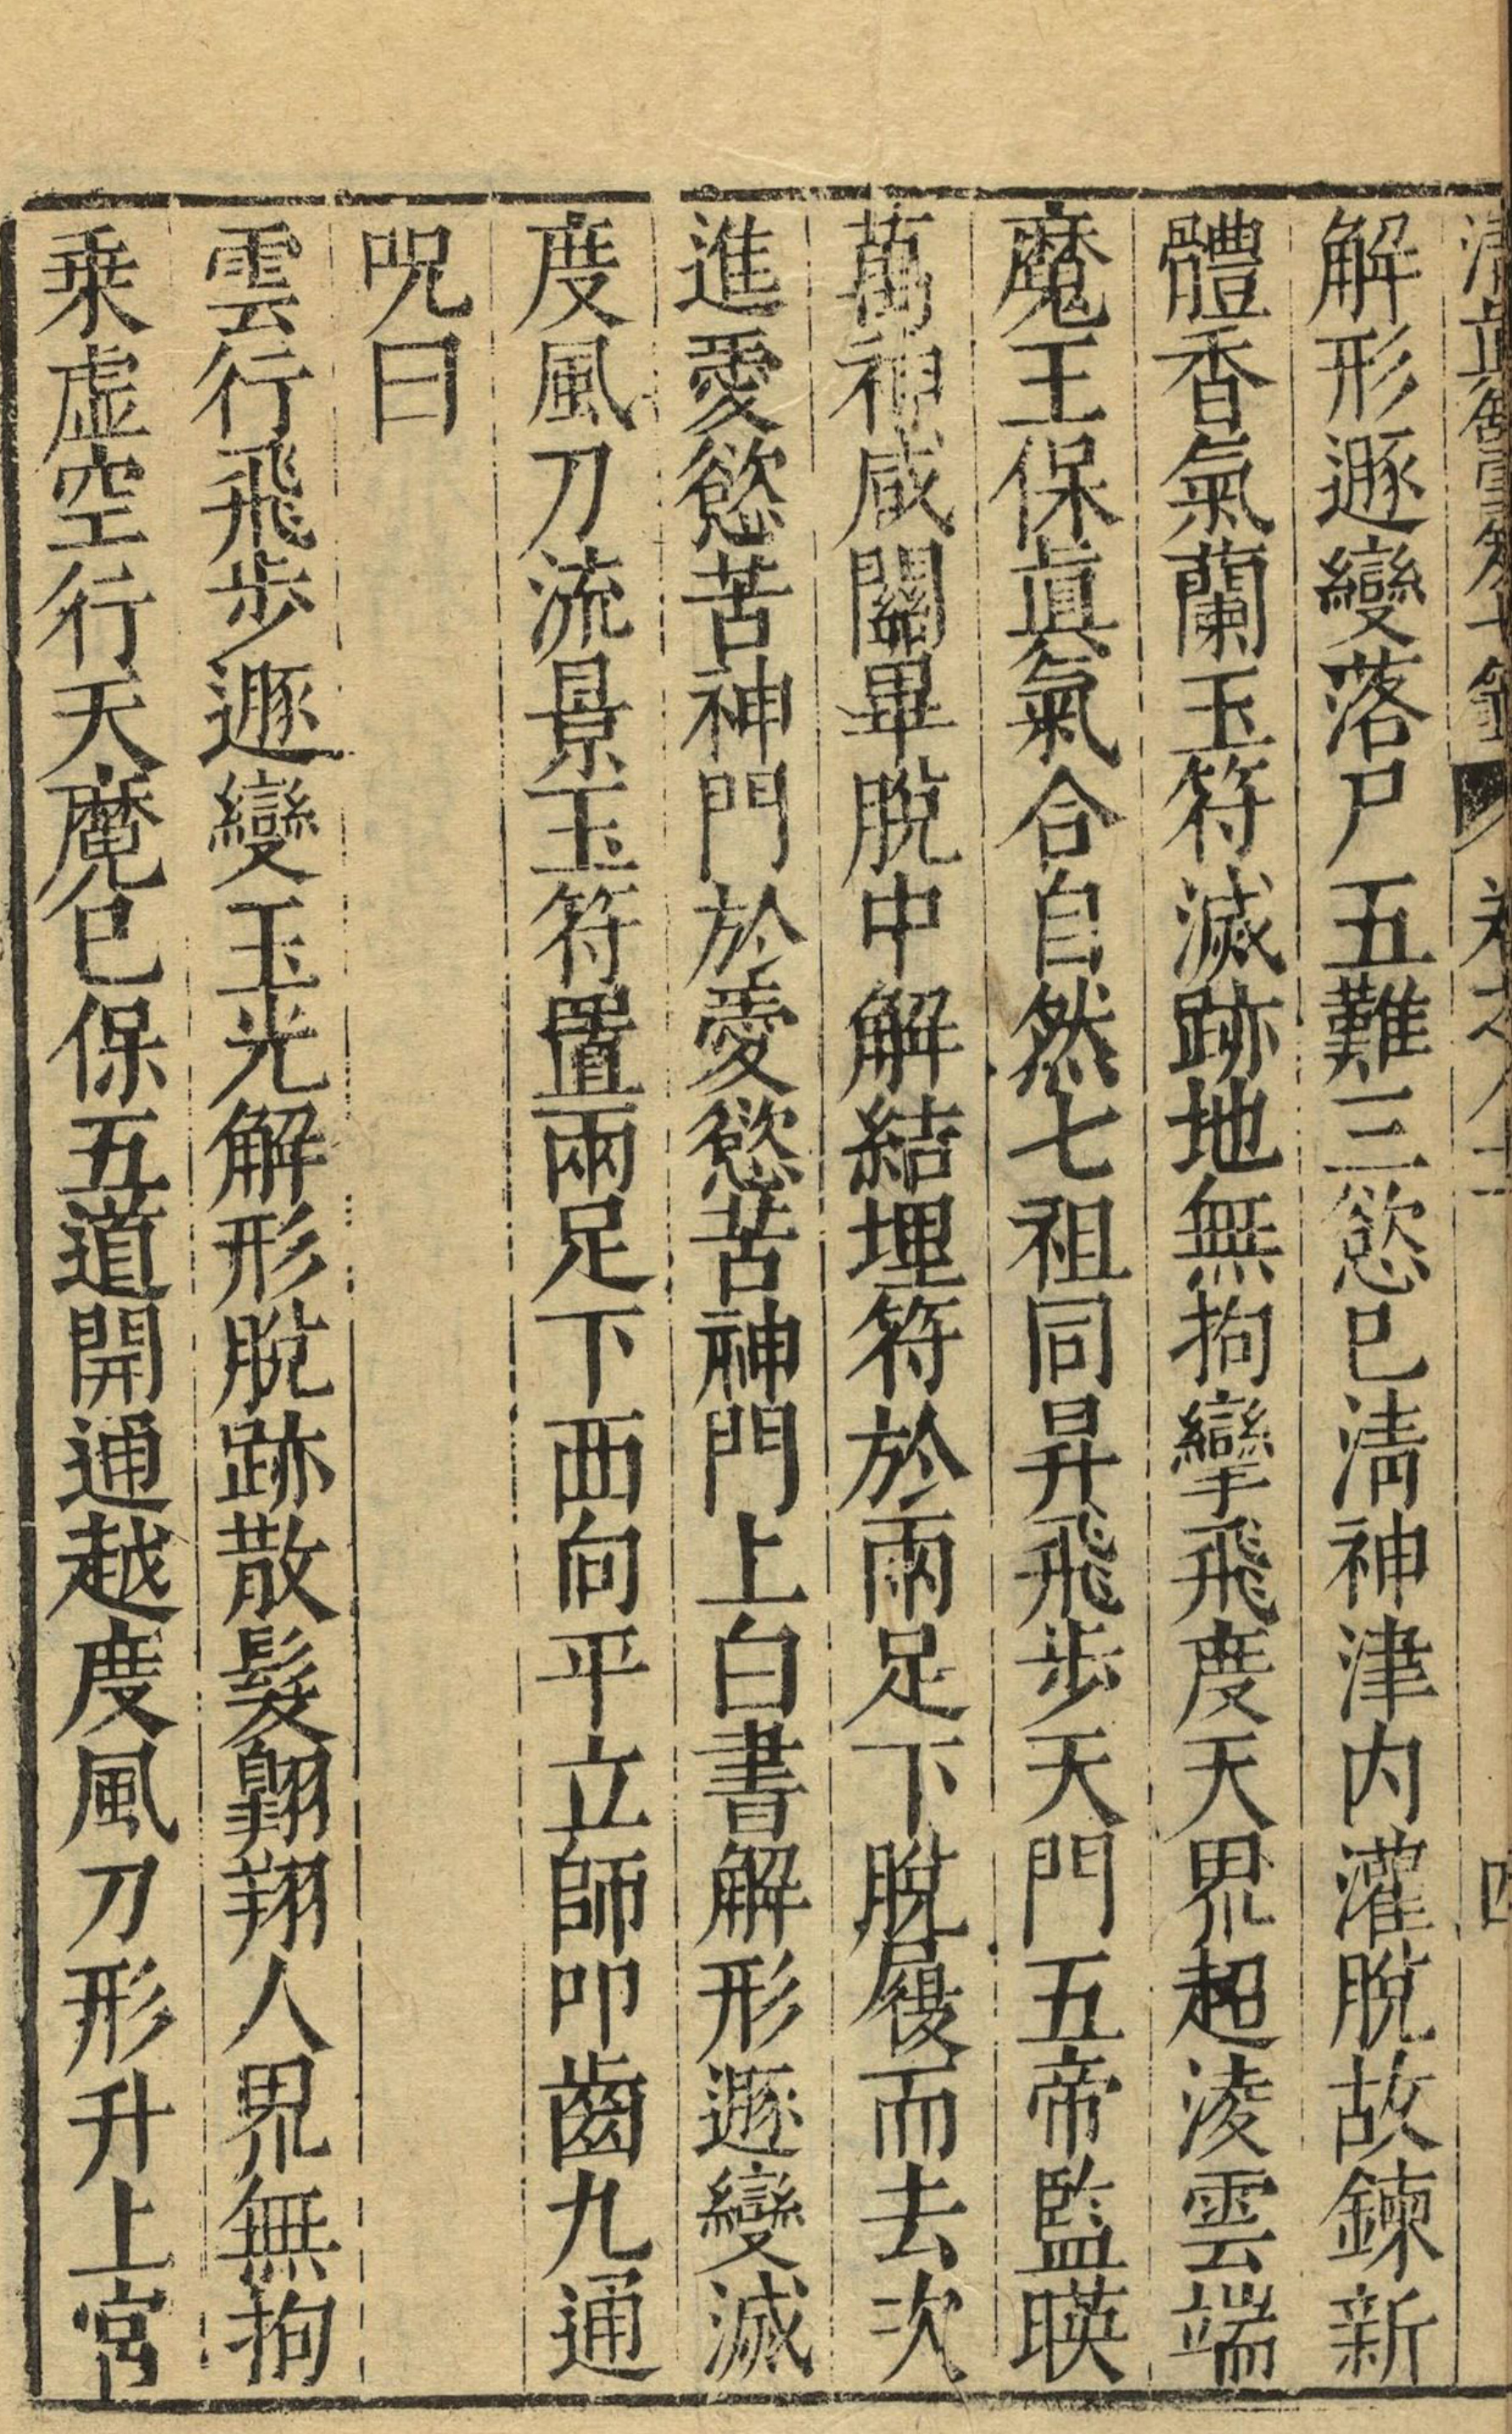 解形遯變落尸五難三慾已淸神津内灌脫故鍊新
體香氣蘭玉符滅跡地無拘攣飛度天界超淩雲端
魔王保眞氣合自然七祖同昇飛步天門五帝監暎
萬神咸關畢脫中解結埋符於兩足下脫履而去次
進愛慾苦神門於愛慾苦神門上白書解形遯變滅
度風刀流景玉符置兩足下西向平立師叩齒九通
呪曰
雲行飛步遯變玉光解形脫跡散髮翺翔人界無拘
乗虛空行天魔已保五道開通越度風刀形升上宮